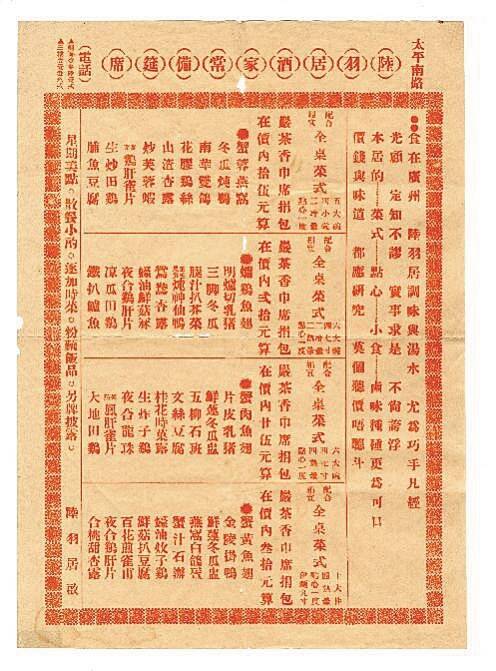 太平南路
陸羽居酒家常備筵席
（電話）
●●食在廣州　陸羽居調味與湯水　尤為巧手凡經
光顧　定知不謬　實事求是　不尚誇浮
本居的……菜式……點心……小食……滷味種種更為可口
價錢與味道　都應研究　莫個聽價唔聽斗
配合
全桌菜式
嚴茶香巾席捐包
在價內拾伍元算
●蟹蓉燕窩
冬瓜燉鴨
南華雙鴿
花膠鷄絲
山渣杏露
炒芙蓉蝦
鷄肝雀片
生炒田鷄
脯魚豆腐
配合
全桌菜式
六大碗
嚴茶香巾席捐包
在價內弍拾元算
●燴鷄魚翅
明爐切乳豬
三脚冬瓜
腿汁扒芥菜
燉神仙鴨
鴛鴦杏露
蠔油鮮菇蔴
夜合鷄肝片
凉瓜田鷄
鐵扒鱸魚
配合
全桌菜式
六大碗
嚴茶香巾席捐包
在價內廿伍元算
●蟹肉魚翅
片皮乳豬
鮮蓮冬瓜盅
五柳石斑
文絲豆腐
生炸子鷄
桂花時菜露
夜合龍珠
鳳肝雀片
大地田鷄
配合
全桌菜式
嚴茶香巾席捐包
在價內叁拾元算
●蟹黃魚翅
金陵掛鴨
鮮蓮冬瓜盅
燕窩白鴿蛋
蟹汁石斑
蠔油炆子鷄
鮮菇扒豆腐
百花煎雀甫
夜合鷄肝片
合桃甜杏露
星期美點○散餐小酌○逢加時菜○粉麵飯品○另牌披露○
陸羽居啟